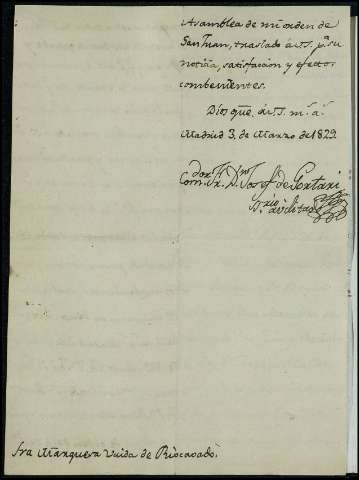 Asamblea de mi orden de
San Juan, traslado á V.S. pa. su
noticia, satisfaccion y efectos
combenientes.
Dios gue. á V.S. ms. as.
Madrid 3. de Marzo de 1829.
Comdor. Fr. Dn. Josef de Gortari
Srio.
Sra Marquesa Viuda de Riocavado.